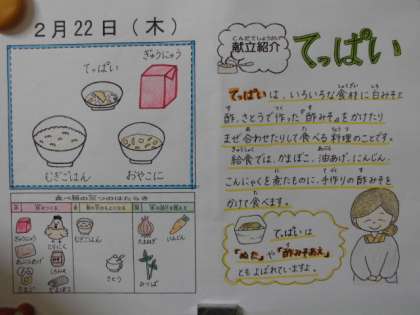 2月22日(木)
ぎゅうにゅう
てっぱい
むぎごはん
おやこに
食べ物の三つのはたらき
ぎゅうにゅう
むぎごはん
たまねぎ
にんじん
とりにく
さとう
みつば
こんだてしょうかい
献立紹介
てっぱい
てっぱいは、いろいろな食材に白みそと
酢、さとうで作った"酢みそ"をかけたり
まぜ合わせたりして食べる料理のことです。
給食では、かまぼこ、油あげ、にんじん、
こんにゃくを煮たものに、手作りの酢みそを
かけて食べます。
てっぱいは
"ぬた"や"酢みそあえ"
ともよばれていますよ。